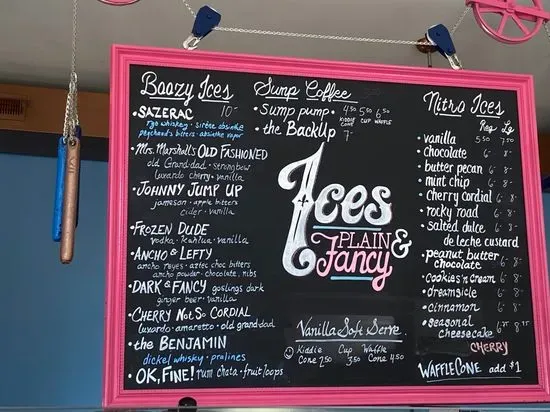 Boozy Ices
• SAZERAC 10-
rye whiskey • sirène absinthe
peychaud's bitters • absinthe vapor
• Mrs. Marshall's OLD FASHIONED
old Grandad • strongbow
luxardo cherry • vanilla
• JOHNNY JUMP UP
jameson • apple bitters
cider • vanilla
• FROZEN DUDE
vodka • kahlua • vanilla
• ANCHO & LEFTY
ancho reyes • aztec choc bitters
ancho powder • chocolate, nibs
• DARK & FANCY goslings dark
ginger beer • vanilla
• CHERRY NOT SO CORDIAL
luxardo • amaretto • old grandad
• the BENJAMIN
dickel whiskey • pralines
• OK, FINE! rum chata • fruit loops
Sump Coffee
• Sump pump • 4.50 5.50 6.50
KIDDIE CONE CUP WAFFLE
• the BackUp 7-
Ices
PLAIN &
Fancy
Vanilla Soft Serve
Kiddie Cone 2.50 Cup 3.50 Waffle Cone 4.50
Nitro Ices
Reg Lg
• vanilla 5.50 7.50
• chocolate 6- 8-
• butter pecan 6- 8-
• mint chip 6- 8-
• cherry cordial 6- 8-
• rocky road 6- 8-
• salted dulce 6- 8-
de leche custard
• peanut butter
chocolate 6- 8-
• cookies 'n cream 6- 8-
• dreamsicle 6- 8-
• cinnamon 6- 8-
• seasonal
cheesecake
CHERRY
WAFFLE CONE add $1